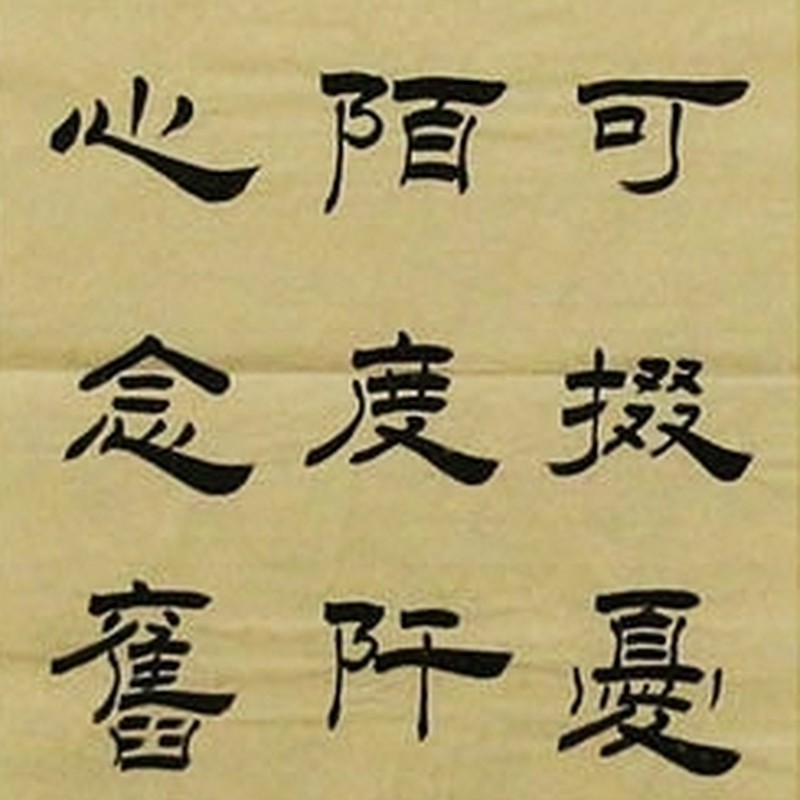 可掇憂
陌度阡
心念舊